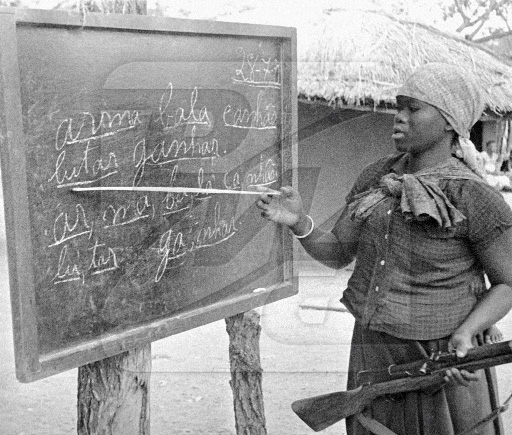 28-7-
arma, bala canhão
lutar ganhar.
ar, ma, ba la, ca nhão
lu, tar ga, nhar